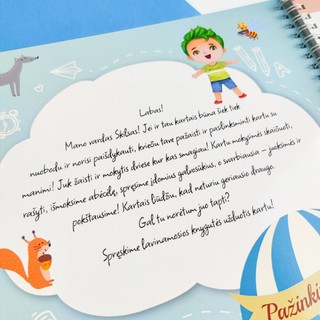 Labas!
Mano vardas Skilsas! Jei ir tau kartais būna šiek tiek
nuobodu ir norisi paišdykauti, kviečiu tave pažaisti ir paslinksminti kartu su
manimi! Juk žaisti ir mokytis driese kur kas smagiau! Kartu mokysimės skaičiuoti,
rašyti, išmoksime abėcėlę, spręsime įdomius galvosūkius, o svarbiausia – juoksimės ir
pokštausime! Kartais liūdžiu, kad neturiu geriausio draugo.
Gal tu norėtum juo tapti?
Spręskime lavinamosios knygutės užduotis kartu!
Pažinki